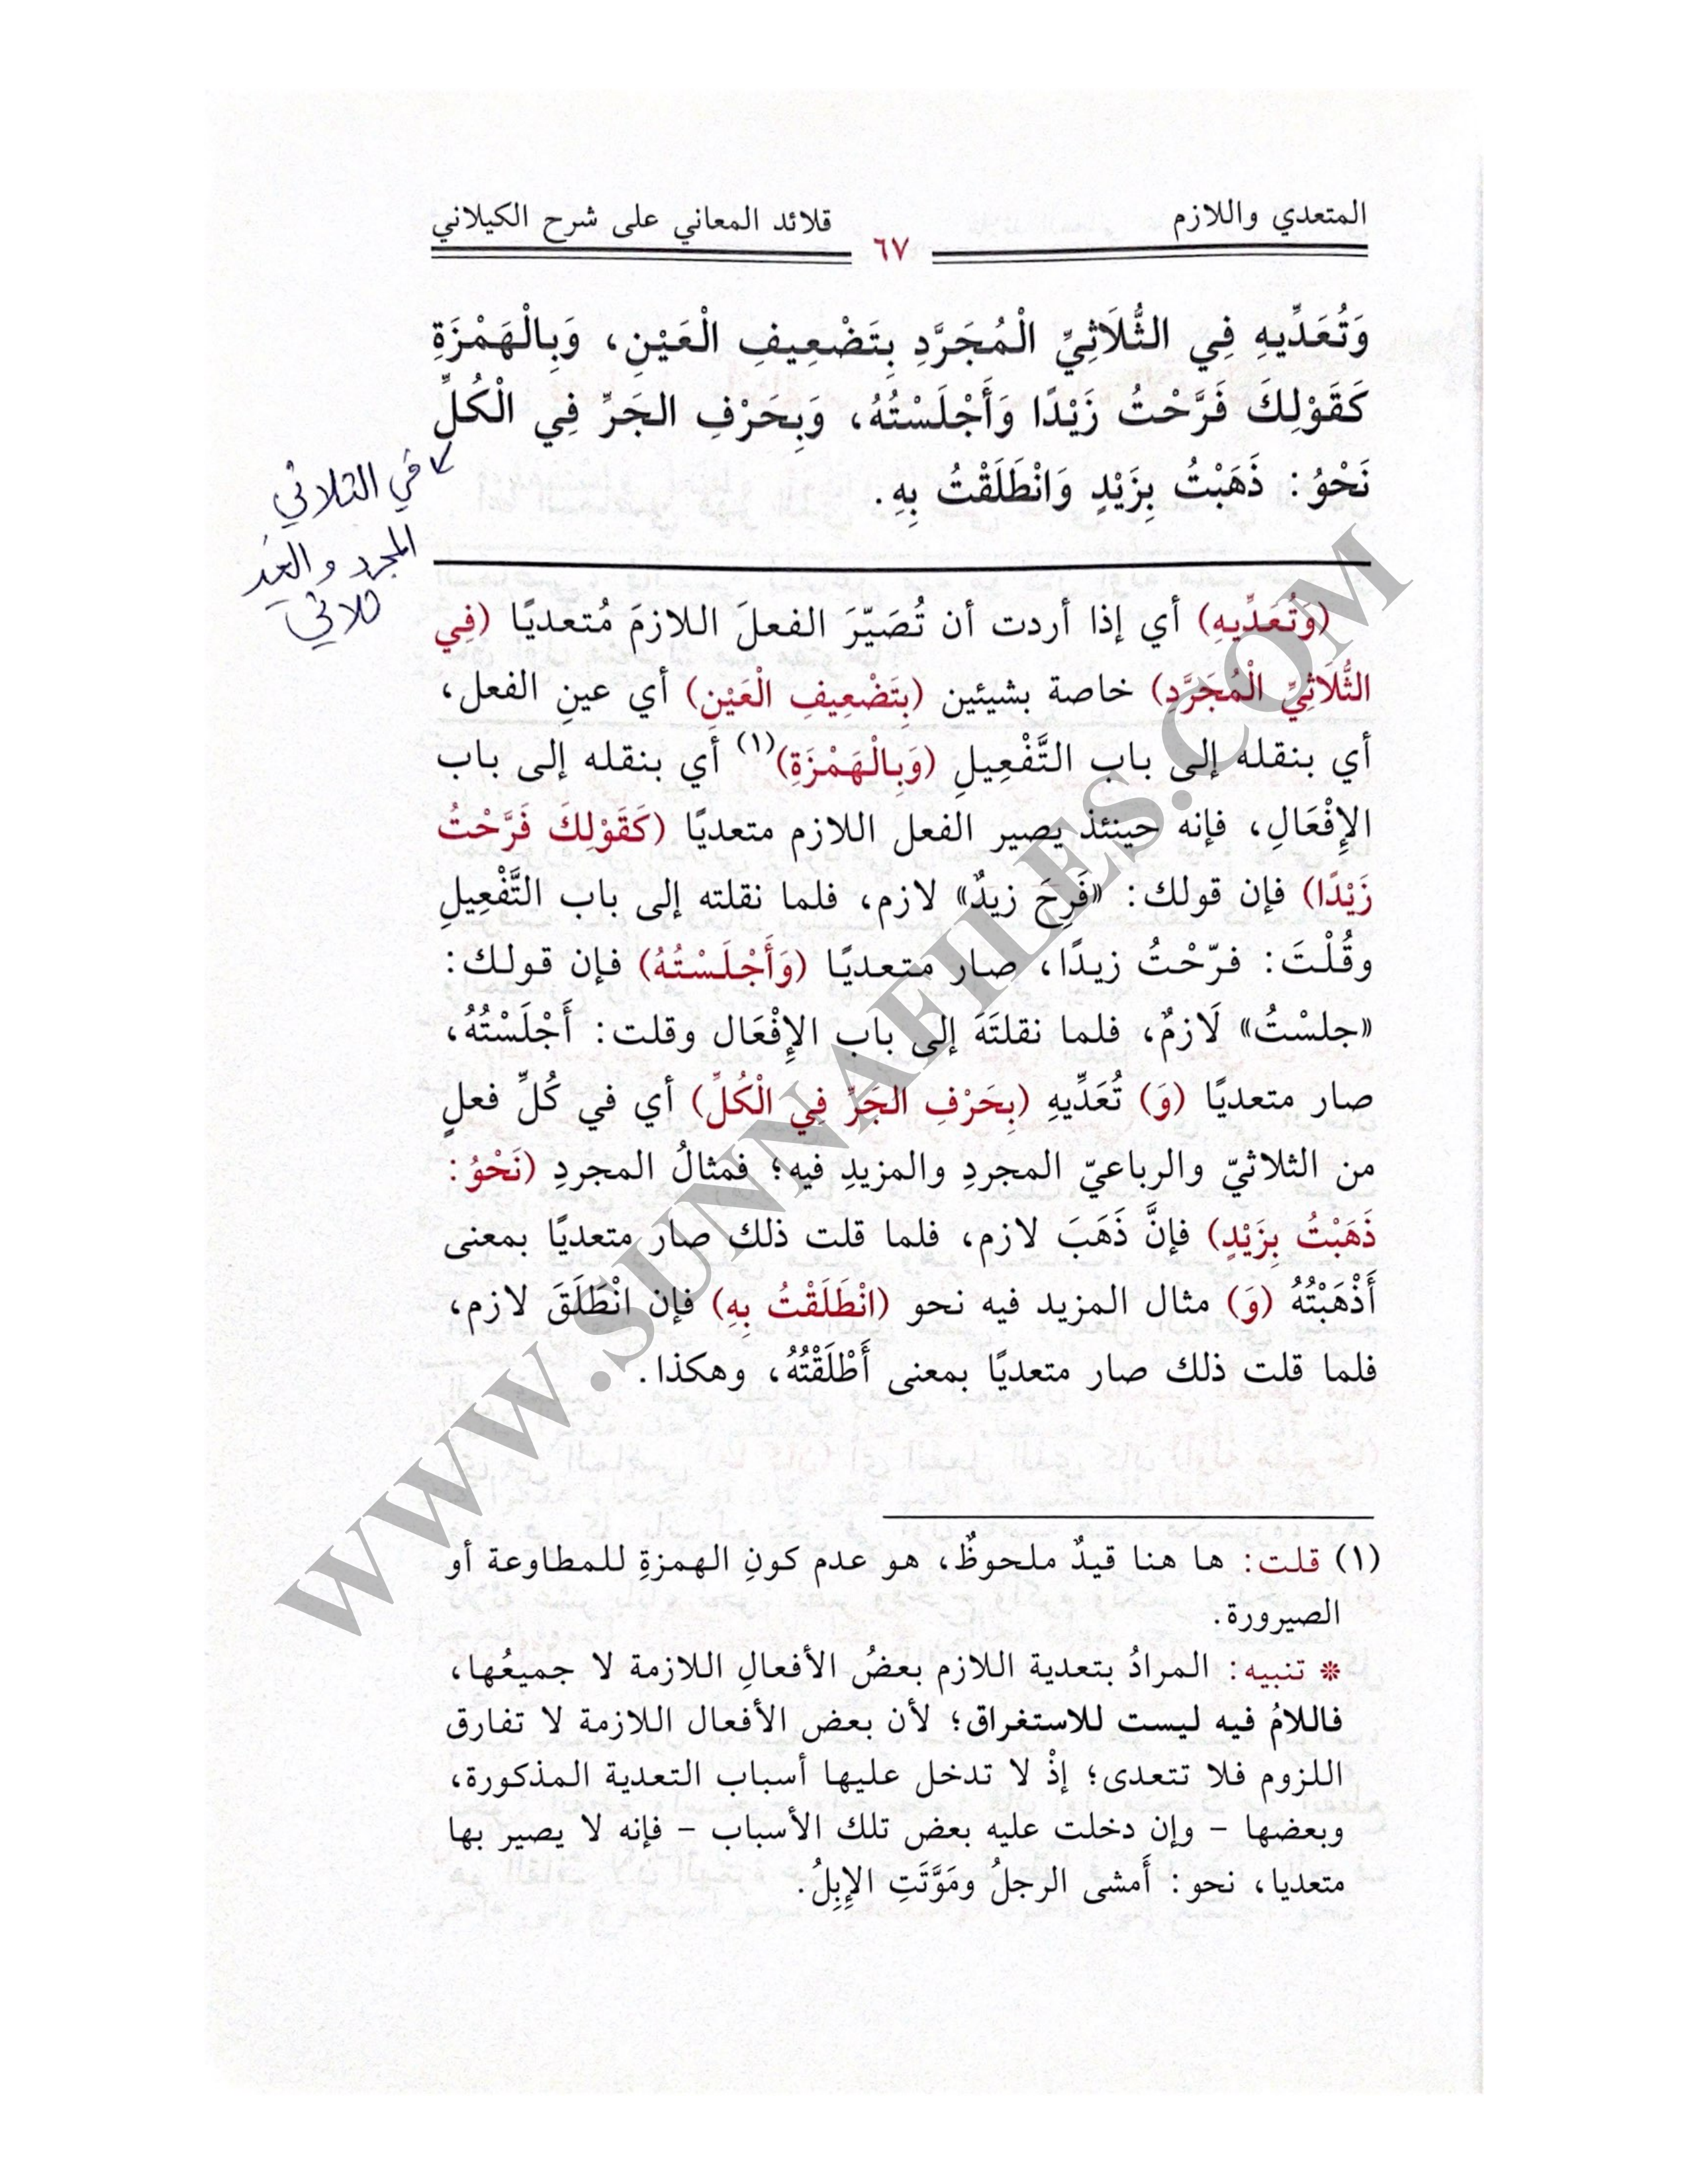 المتعدي واللازم
٦٧
قلائد المعاني على شرح الكيلاني
وَتُعَدِّيهِ فِي الثُّلَاثِيِّ الْمُجَرَّدِ بِتَضْعِيفِ الْعَيْنِ، وَبِالْهَمْزَةِ
كَقَوْلِكَ فَرَّحْتُ زَيْدًا وَأَجْلَسْتُهُ، وَبِحَرْفِ الجَرِّ فِي الْكُلِّ
نَحْوُ: ذَهَبْتُ بِزَيْدٍ وَانْطَلَقْتُ بِهِ.
في الثلاثي
المجرد والغير
ثلاثي
(وَتُعَدِّيهِ) أي إذا أردت أن تُصَيّرَ الفعلَ اللازمَ مُتعديًا (فِي
الثُّلَاثِيِّ الْمُجَرَّدِ) خاصة بشيئين (بِتَضْعِيفِ الْعَيْنِ) أي عينِ الفعل،
أي بنقله إلى باب التَّفْعِيلِ (وَبِالْهَمْزَةِ)(١) أي بنقله إلى باب
الإِفْعَالِ، فإنه حينئذ يصير الفعل اللازم متعديًا (كَقَوْلِكَ فَرَّحْتُ
زَيْدًا) فإن قولك: «فَرِحَ زيدٌ» لازم، فلما نقلته إلى باب التَّفْعِيلِ
وقُلْتَ: فرّحْتُ زيدًا، صار متعديًا (وَأَجْلَسْتُهُ) فإن قولك:
«جلسْتُ» لَازمٌ، فلما نقلتَهَ إلى باب الإِفْعَال وقلت: أَجْلَسْتُهُ،
صار متعديًا (وَ) تُعَدِّيهِ (بِحَرْفِ الجَرِّ فِي الْكُلِّ) أي في كُلِّ فعلٍ
من الثلاثيّ والرباعيّ المجردِ والمزيدِ فيه؛ فمثالُ المجردِ (نَحْوُ:
ذَهَبْتُ بِزَيْدٍ) فإنَّ ذَهَبَ لازم، فلما قلت ذلك صار متعديًا بمعنى
أَذْهَبْتُهُ (وَ) مثال المزيد فيه نحو (انْطَلَقْتُ بِهِ) فإن انْطَلَقَ لازم،
فلما قلت ذلك صار متعديًا بمعنى أَطْلَقْتُهُ، وهكذا.
(١) قلت: ها هنا قيدٌ ملحوظٌ، هو عدم كونِ الهمزةِ للمطاوعة أو
الصيرورة.
❊ تنبيه: المرادُ بتعدية اللازم بعضُ الأفعالِ اللازمة لا جميعُها،
فاللامُ فيه ليست للاستغراق؛ لأن بعض الأفعال اللازمة لا تفارق
اللزوم فلا تتعدى؛ إذْ لا تدخل عليها أسباب التعدية المذكورة،
وبعضها - وإن دخلت عليه بعض تلك الأسباب - فإنه لا يصير بها
متعديا، نحو: أَمشى الرجلُ ومَوَّتَتِ الإِبِلُ.
WWW.SUNNAFILES.COM